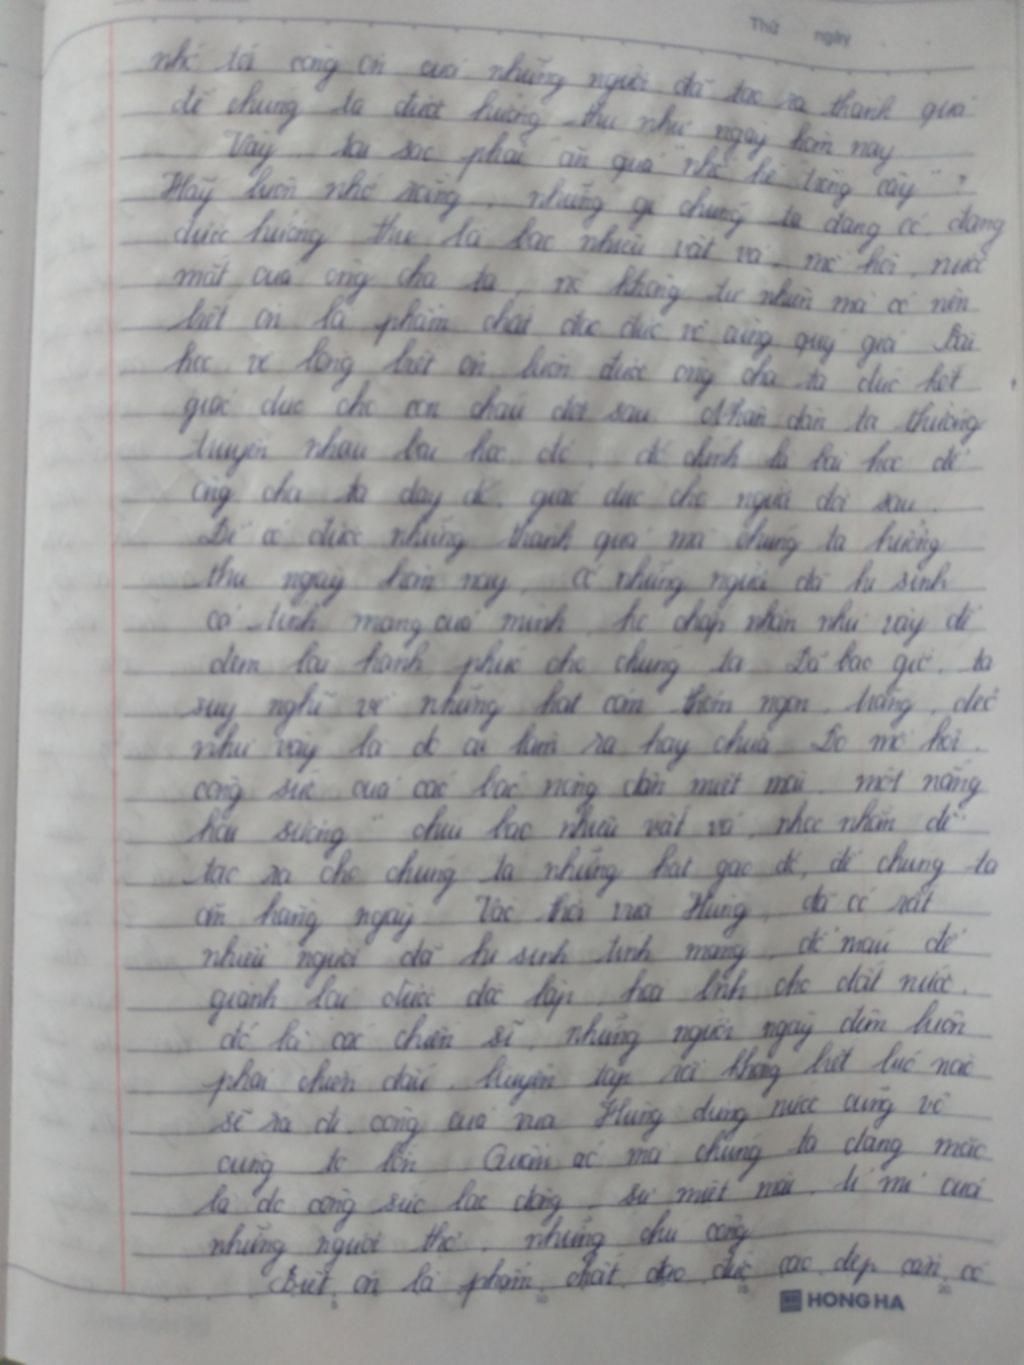 Thứ ngày
nhớ tới công ơn của những người đã tạo ra thành quả
để chúng ta được hưởng thụ như ngày hôm nay
Vậy, tại sao phải ăn quả "nhớ kẻ trồng cây"?
Hãy luôn nhớ rằng, những gì chúng ta đang có, đang
được hưởng thụ là bao nhiêu vất vả, mồ hôi, nước
mắt của ông cha ta, nó không tự nhiên mà có nên
biết ơn là phẩm chất đạo đức vô cùng quý giá. Bài
học về lòng biết ơn luôn được ông cha ta đúc kết
giáo dục cho con cháu đời sau. Nhân dân ta thường
truyền nhau bài học đó, đó chính là bài học để
ông cha ta dạy dỗ, giáo dục cho người đời sau.
Để có được những thành quả mà chúng ta hưởng
thụ ngày hôm nay, có những người đã hi sinh
cả tính mạng của mình, họ chấp nhận như vậy để
đem lại hạnh phúc cho chúng ta. Đã bao giờ, ta
suy nghĩ về những hạt cơm thơm ngon, trắng, dẻo
như vậy là do ai làm ra hay chưa. Do mồ hôi,
công sức của các bác nông dân miệt mài, một nắng
hai sương" chịu bao nhiêu vất vả, nhọc nhằn để
tạo ra cho chúng ta những hạt gạo đó, để chúng ta
ăn hằng ngày. Vào thời vua Hùng, đã có rất
nhiều người đã hi sinh tính mạng, đổ máu để
giành lại được độc lập, hoà bình cho đất nước,
đó là các chiến sĩ, những người ngày đêm luôn
phải chiến đấu, luyện tập rồi không biết lúc nào
sẽ ra đi, công của vua Hùng dựng nước cũng vô
cùng to lớn. Quần áo mà chúng ta đang mặc
là do công sức lao động, sự miệt mài, tỉ mỉ của
những người thợ, những chú công
Biết ơn là phẩm chất đạo đức cao đẹp cần có
HONG HA